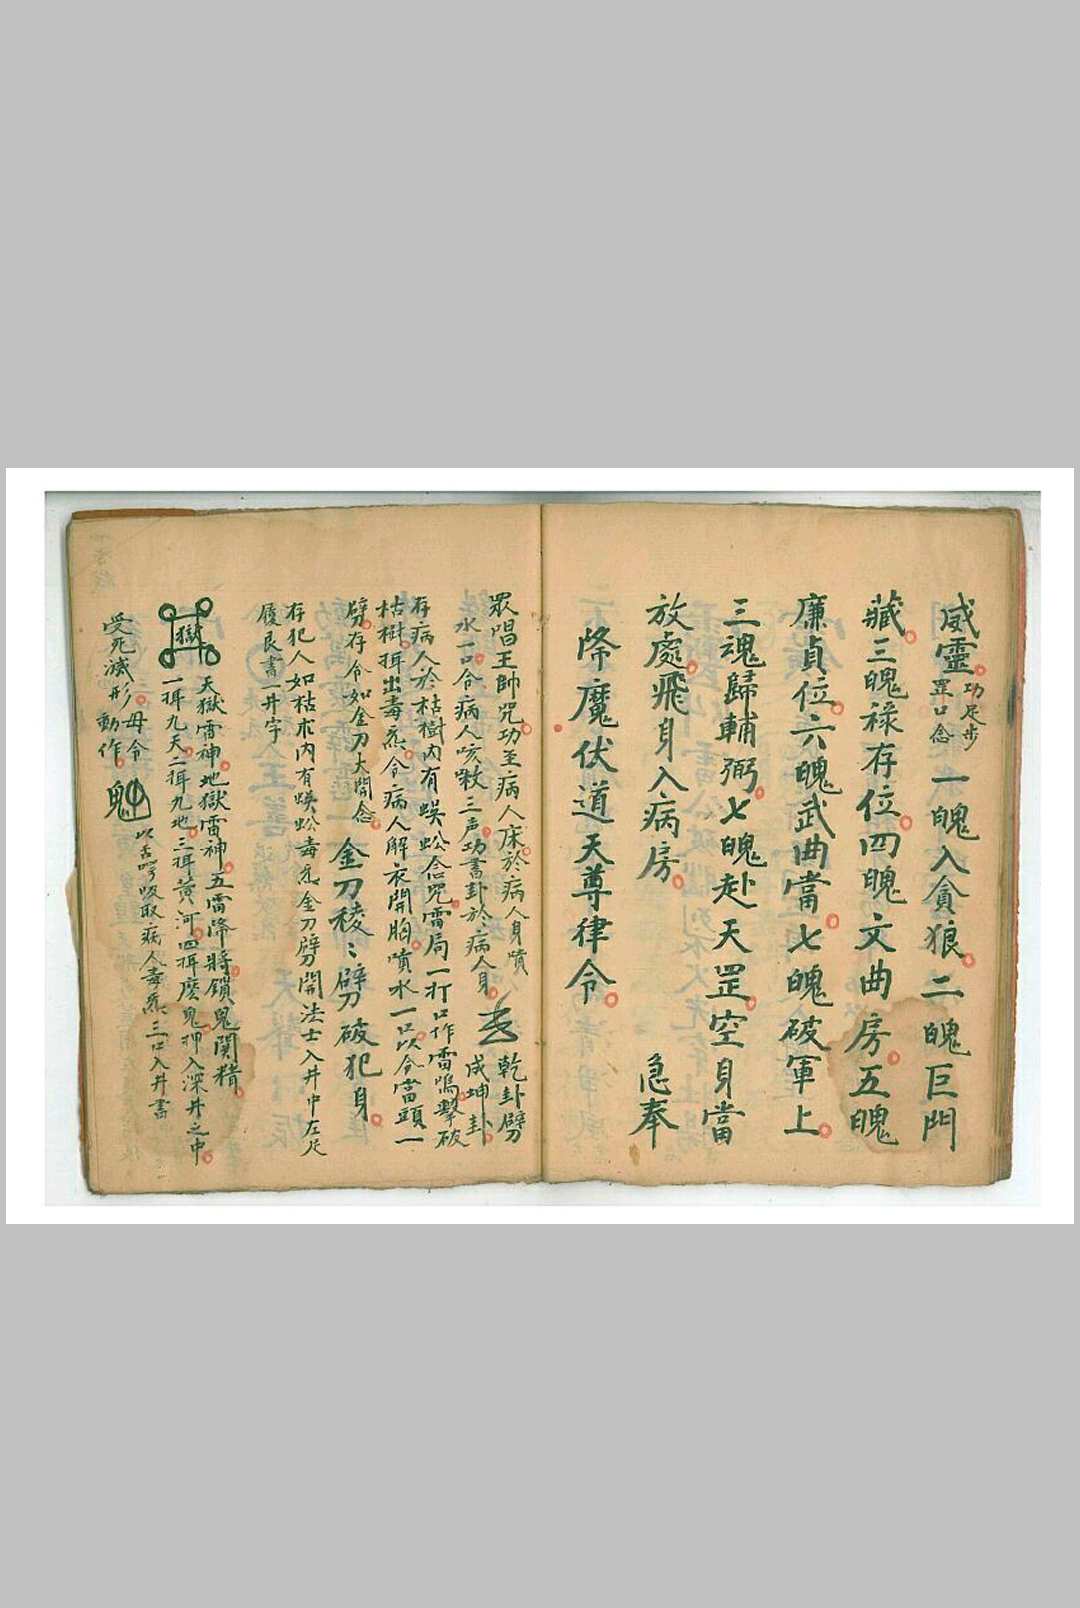 威靈功足步罡口念一魄入貪狼二魄巨門
藏三魄祿存位四魄文曲房五魄
廉貞位六魄武曲當七魄破軍上
三魂歸輔弼七魄赴天罡空身當
放處飛身入病房 急奉
降魔伏道天尊律令
眾唱王帥咒功至病人床於病人身噴
水一口令病人咳嗽三声功書卦於病人身 乾卦劈成坤卦
存病人於枯樹內有蜈蚣念咒雷局一打口作雷鳴擊破
枯樹揖出毒炁令病人解衣開胸噴水一口以令當頭一
劈存令如金刀大間念 金刀稜〻劈破犯身
存犯人如枯木內有蜈蚣毒炁金刀劈開法士入井中左足
履艮書一井字
獄 天獄雷神地獄雷神五雷降將鎖鬼関精
一揖九天二揖九地三揖黃河四揖麽鬼押入深井之中
受死滅形毋令動作 以舌 吸取病人毒炁三口入井書